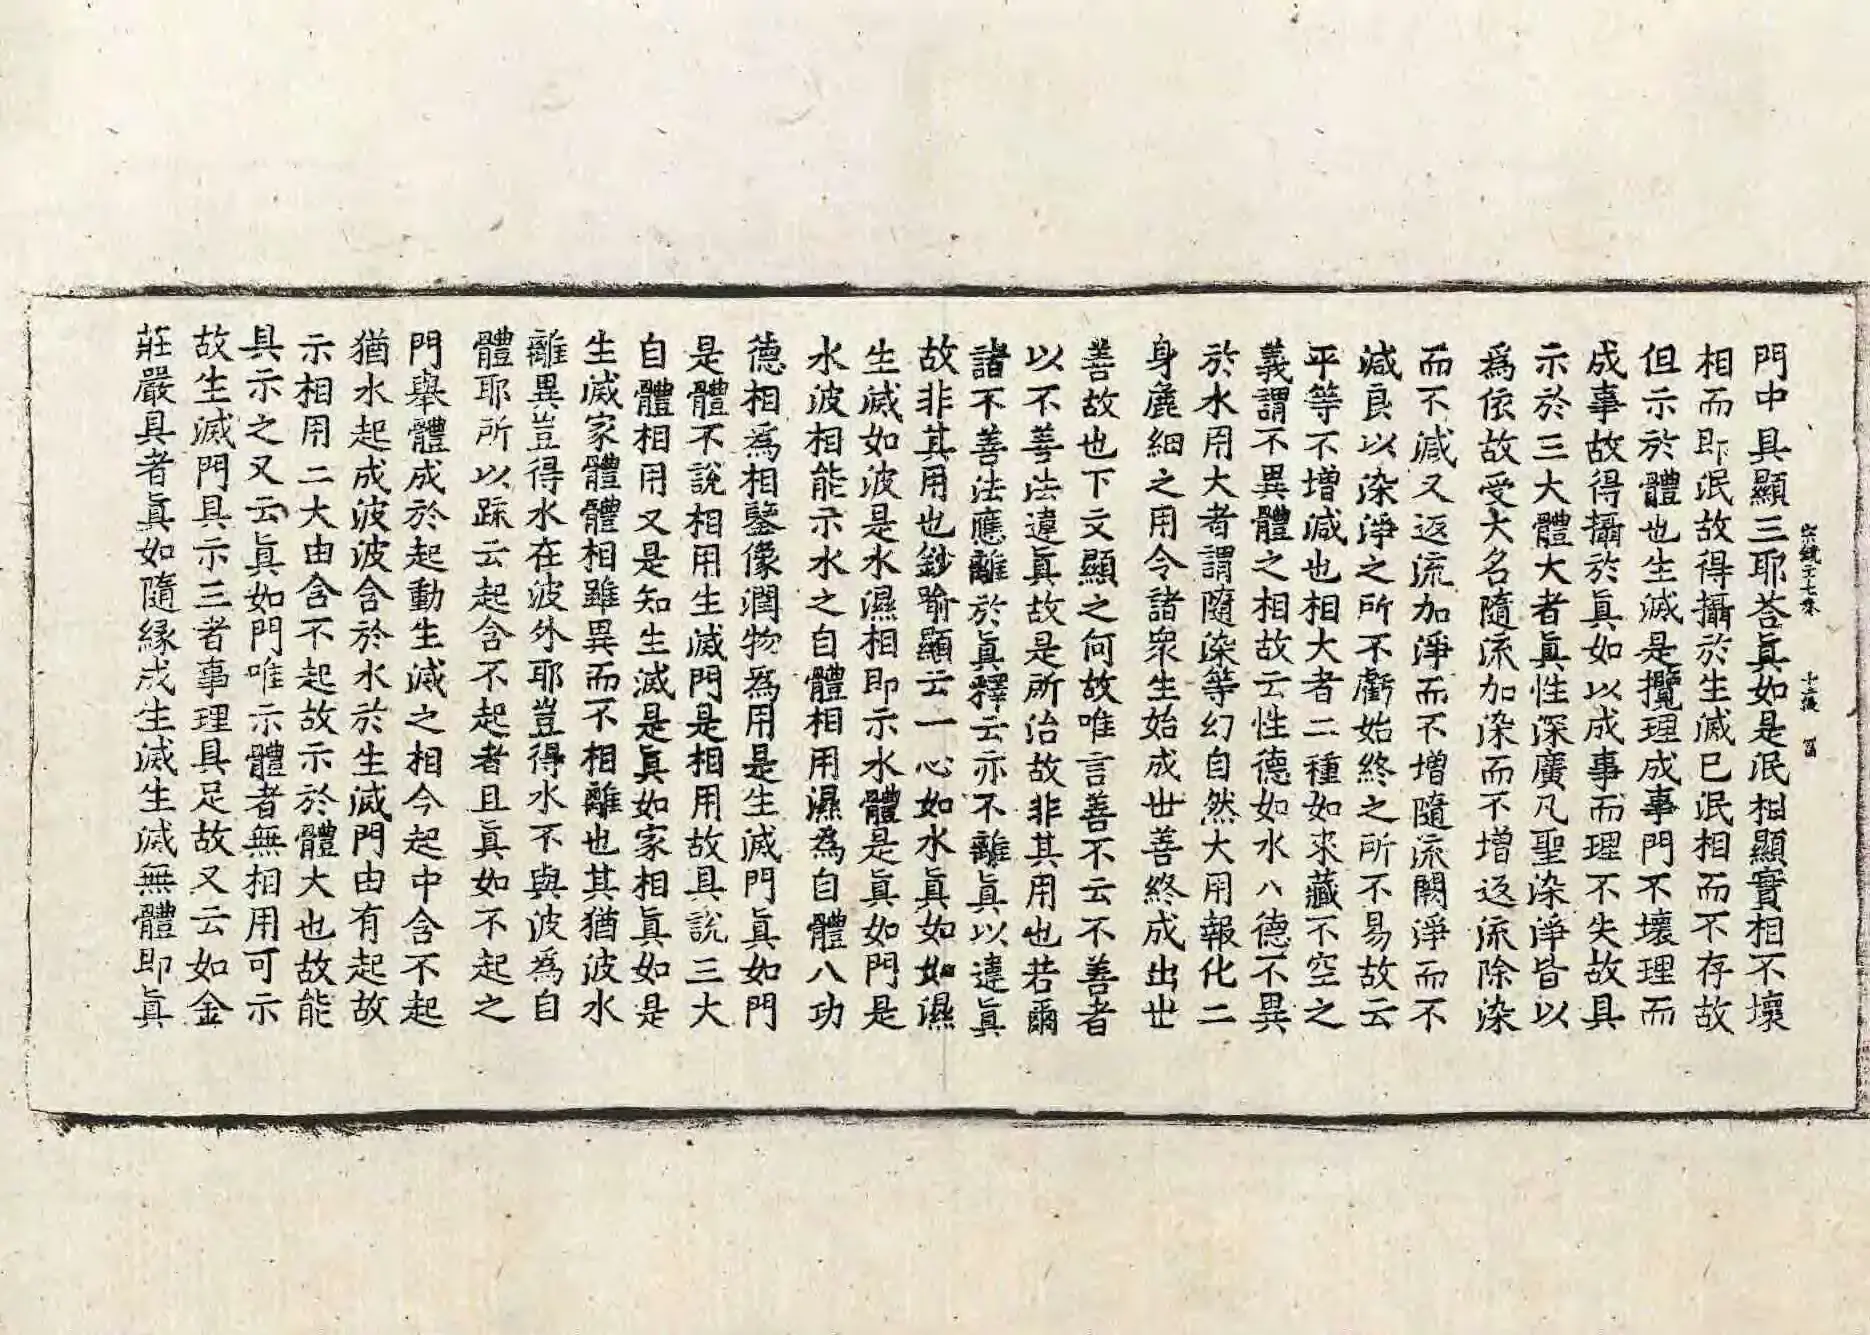 門中具顯三耶荅眞如是泯相顯實相不壞
相而即泯故得攝於生滅已泯相而不存故
但示於體也生滅是攬理成事門不壞理而
成事故得攝於眞如以成事而理不失故具
示於三大體大者眞性深廣凡聖染淨皆以
爲依故受大名隨流加染而不增返流除染
而不減又返流加淨而不增隨流闕淨而不
減良以染淨之所不虧始終之所不易故云
平等不增減也相大者二種如來藏不空之
義謂不異體之相故云性德如水八德不異
於水用大者謂隨染等幻自然大用報化二
身麁細之用令諸衆生始成世善終成出世
善故也下文顯之何故唯言善不云不善者
以不善法違眞故是所治故非其用也若爾
諸不善法應離於眞釋云亦不離眞以違眞
故非其用也鈔喻顯云一心如水眞如如濕
生滅如波是水濕相即示水體是眞如門是
水波相能示水之自體相用濕為自體八功
德相爲相鑒像潤物為用是生滅門眞如門
是體不說相用生滅門是相用故具說三大
自體相用又是知生滅是眞如家相眞如是
生滅家體體相雖異而不相離也其猶波水
離異豈得水在波外耶豈得水不與波為自
體耶所以䟽云起含不起者且眞如不起之
門舉體成於起動生滅之相今起中含不起
猶水起成波波含於水於生滅門由有起故
示相用二大由含不起故示於體大也故能
具示之又云眞如門唯示體者無相用可示
故生滅門具示三者事理具足故又云如金
莊嚴具者眞如隨緣成生滅生滅無體即眞